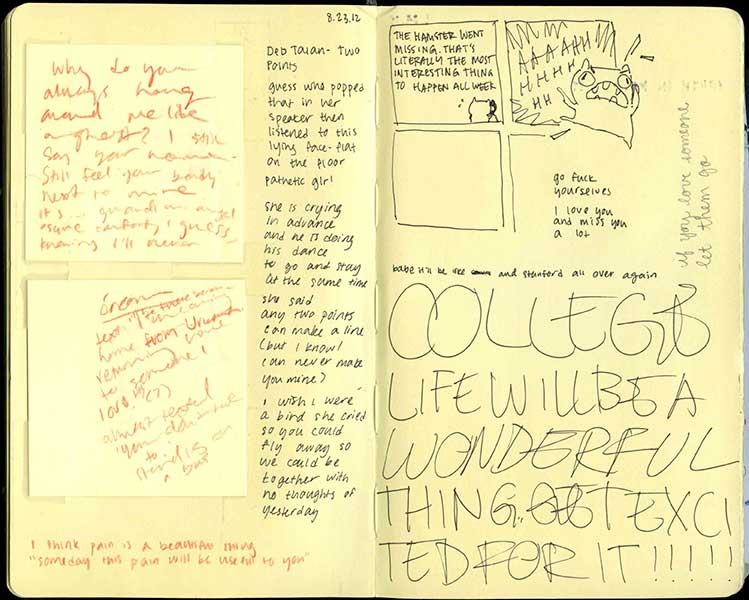 8.23.12
Why do you
always hang
around me like
a ghost? I still
say your name.
Still feel your body
next to mine
it's... guardian angel
esque comfort, I guess
knowing I'll never
dream
text "I'm
home from
to someone I
love (?)
almost texted
I think pain is a beautiful thing
"someday this pain will be useful to you"
Deb Talan - two
points
guess who popped
that in her
speaker then
listened to this
lying face-flat
on the floor
pathetic girl
she is crying
in advance
and he is doing
his dance
to go and stay
at the same time
she said
any two points
can make a line
(but I know I
can never make
you mine)
I wish I were
a bird she cried
so you could
fly away so
we could be
together with
no thoughts of
yesterday
THE HAMSTER WENT
MISSING. THAT'S
LITERALLY THE MOST
INTERESTING THING
TO HAPPEN ALL WEEK
AAAAHH
HHHH
HH
go fuck
yourselves
I love you
and miss you
a lot
if you love someone
let them go
babe it'll be like and stanford all over again
COLLEGE
LIFE WILL BE A
WONDERFUL
THING. GET EXCI
TED FOR IT!!!!!